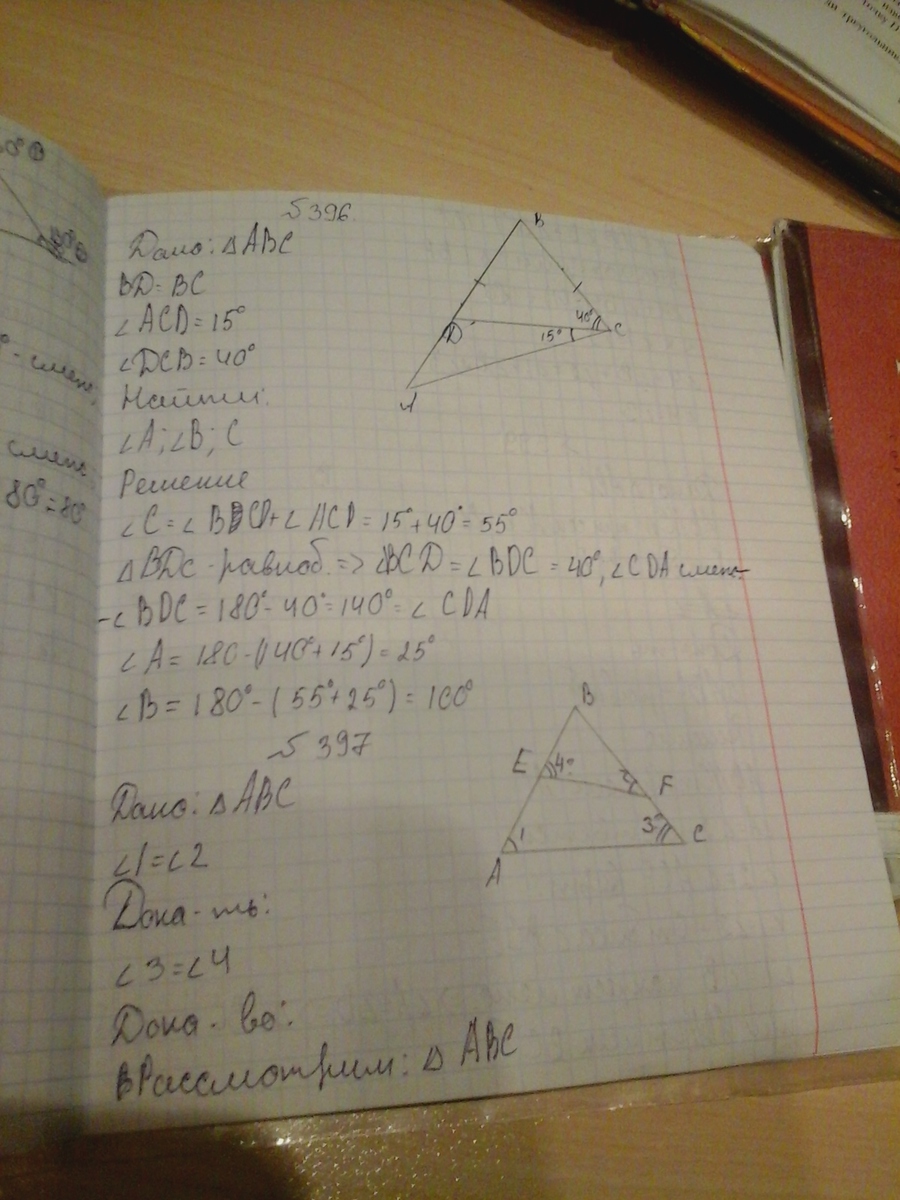 №396
Дано: △ABC
BD=BC
∠ACD=15°
∠DCB=40°
Найти:
∠A; ∠B; C
Решение
∠C=∠BDCD+∠ACD=15°+40°=55°
△BDC-равноб.=>∠BCD=∠BDC=40°, ∠CDA смеж-
-∠BDC=180°-40°=140°=∠CDA
∠A=180-(140°+15°)=25°
∠B=180°-(55°+25°)=100°
B
D
40°
15°
C
A
№397
Дано: △ABC
∠1=∠2
Дока-ть:
∠3=∠4
Дока-во:
ВРассмотрим: △ABC
B
E
4
2
F
3
C
1
A
смеж,
смеж.
80°=80